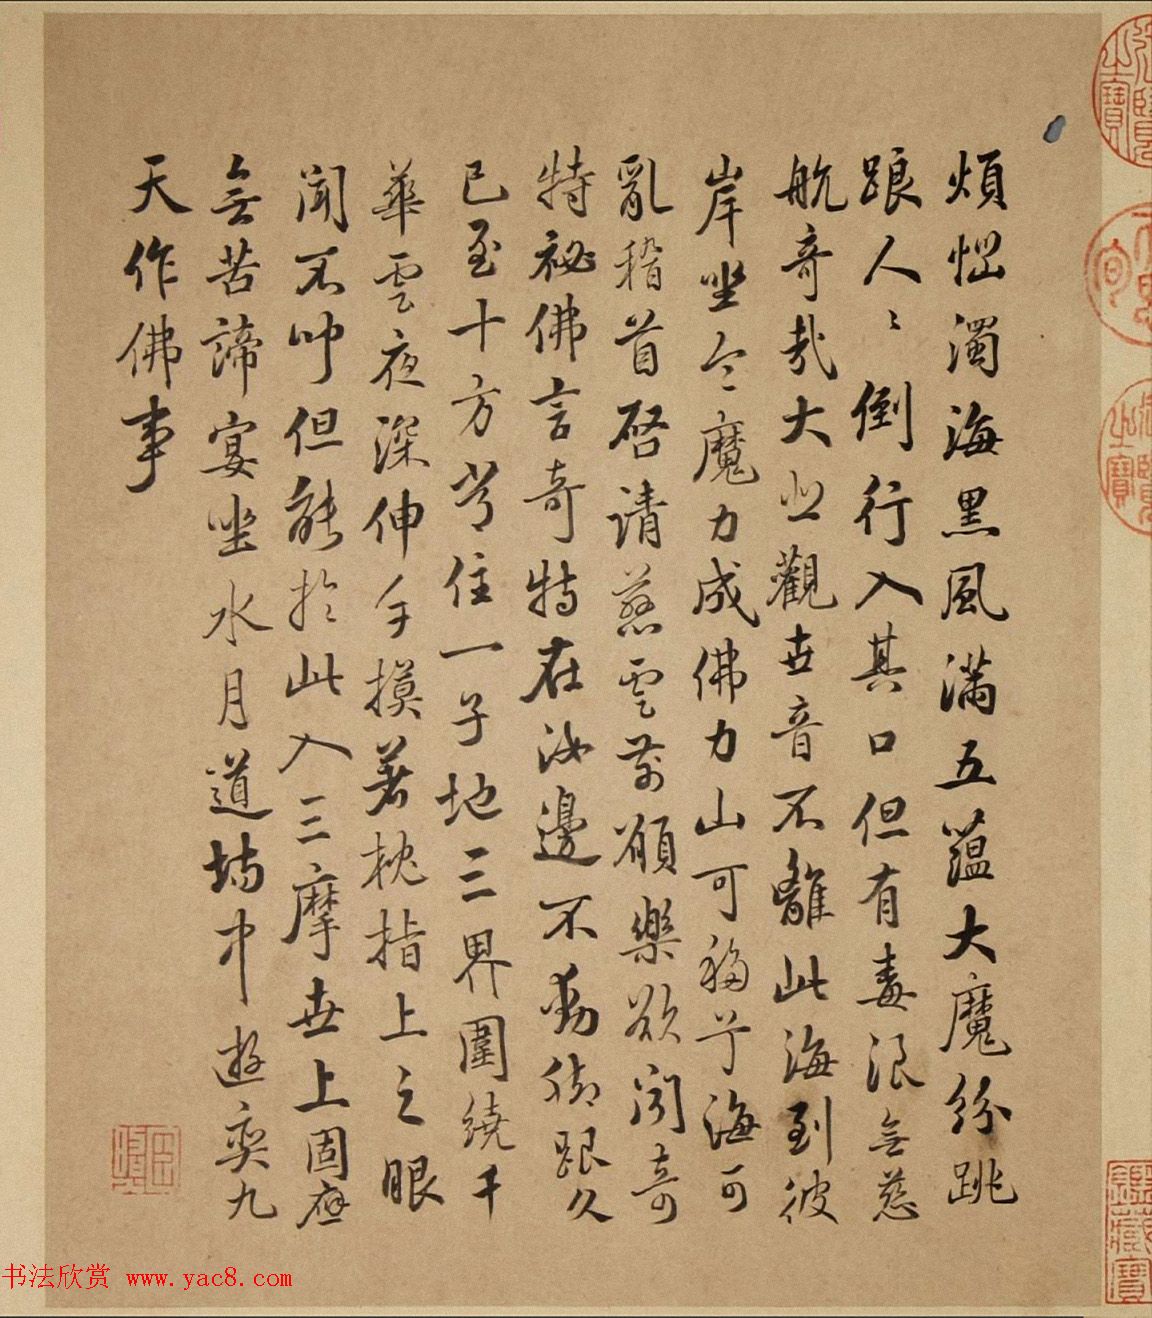 煩惱濁海黑風滿五蘊大魔紛跳
踉人〻倒行入其口但有毒浪無慈
航奇哉大悲觀世音不離此海到彼
岸坐令魔力成佛力山可移兮海可
亂稽首啓請慈雲前願樂欲聞奇
特秘佛言奇特在汝邊不動腳跟久
已至十方皆住一子地三界圍繞千
華雲夜深伸手摸著枕指上之眼
聞不叩但能於此入三摩世上固應
無苦諦宴坐水月道場中遊奕九
天作佛事
鑑藏寶
书法欣赏 www.yac8.com